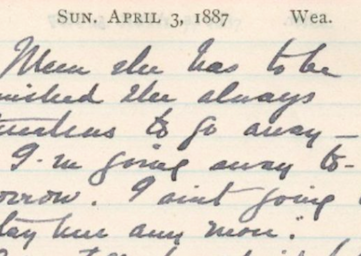 SUN. APRIL 3, 1887 Wea.
When she has to be
nished she always
to go away—
I'm going away to-
orrow. I aint going
tay here any more."